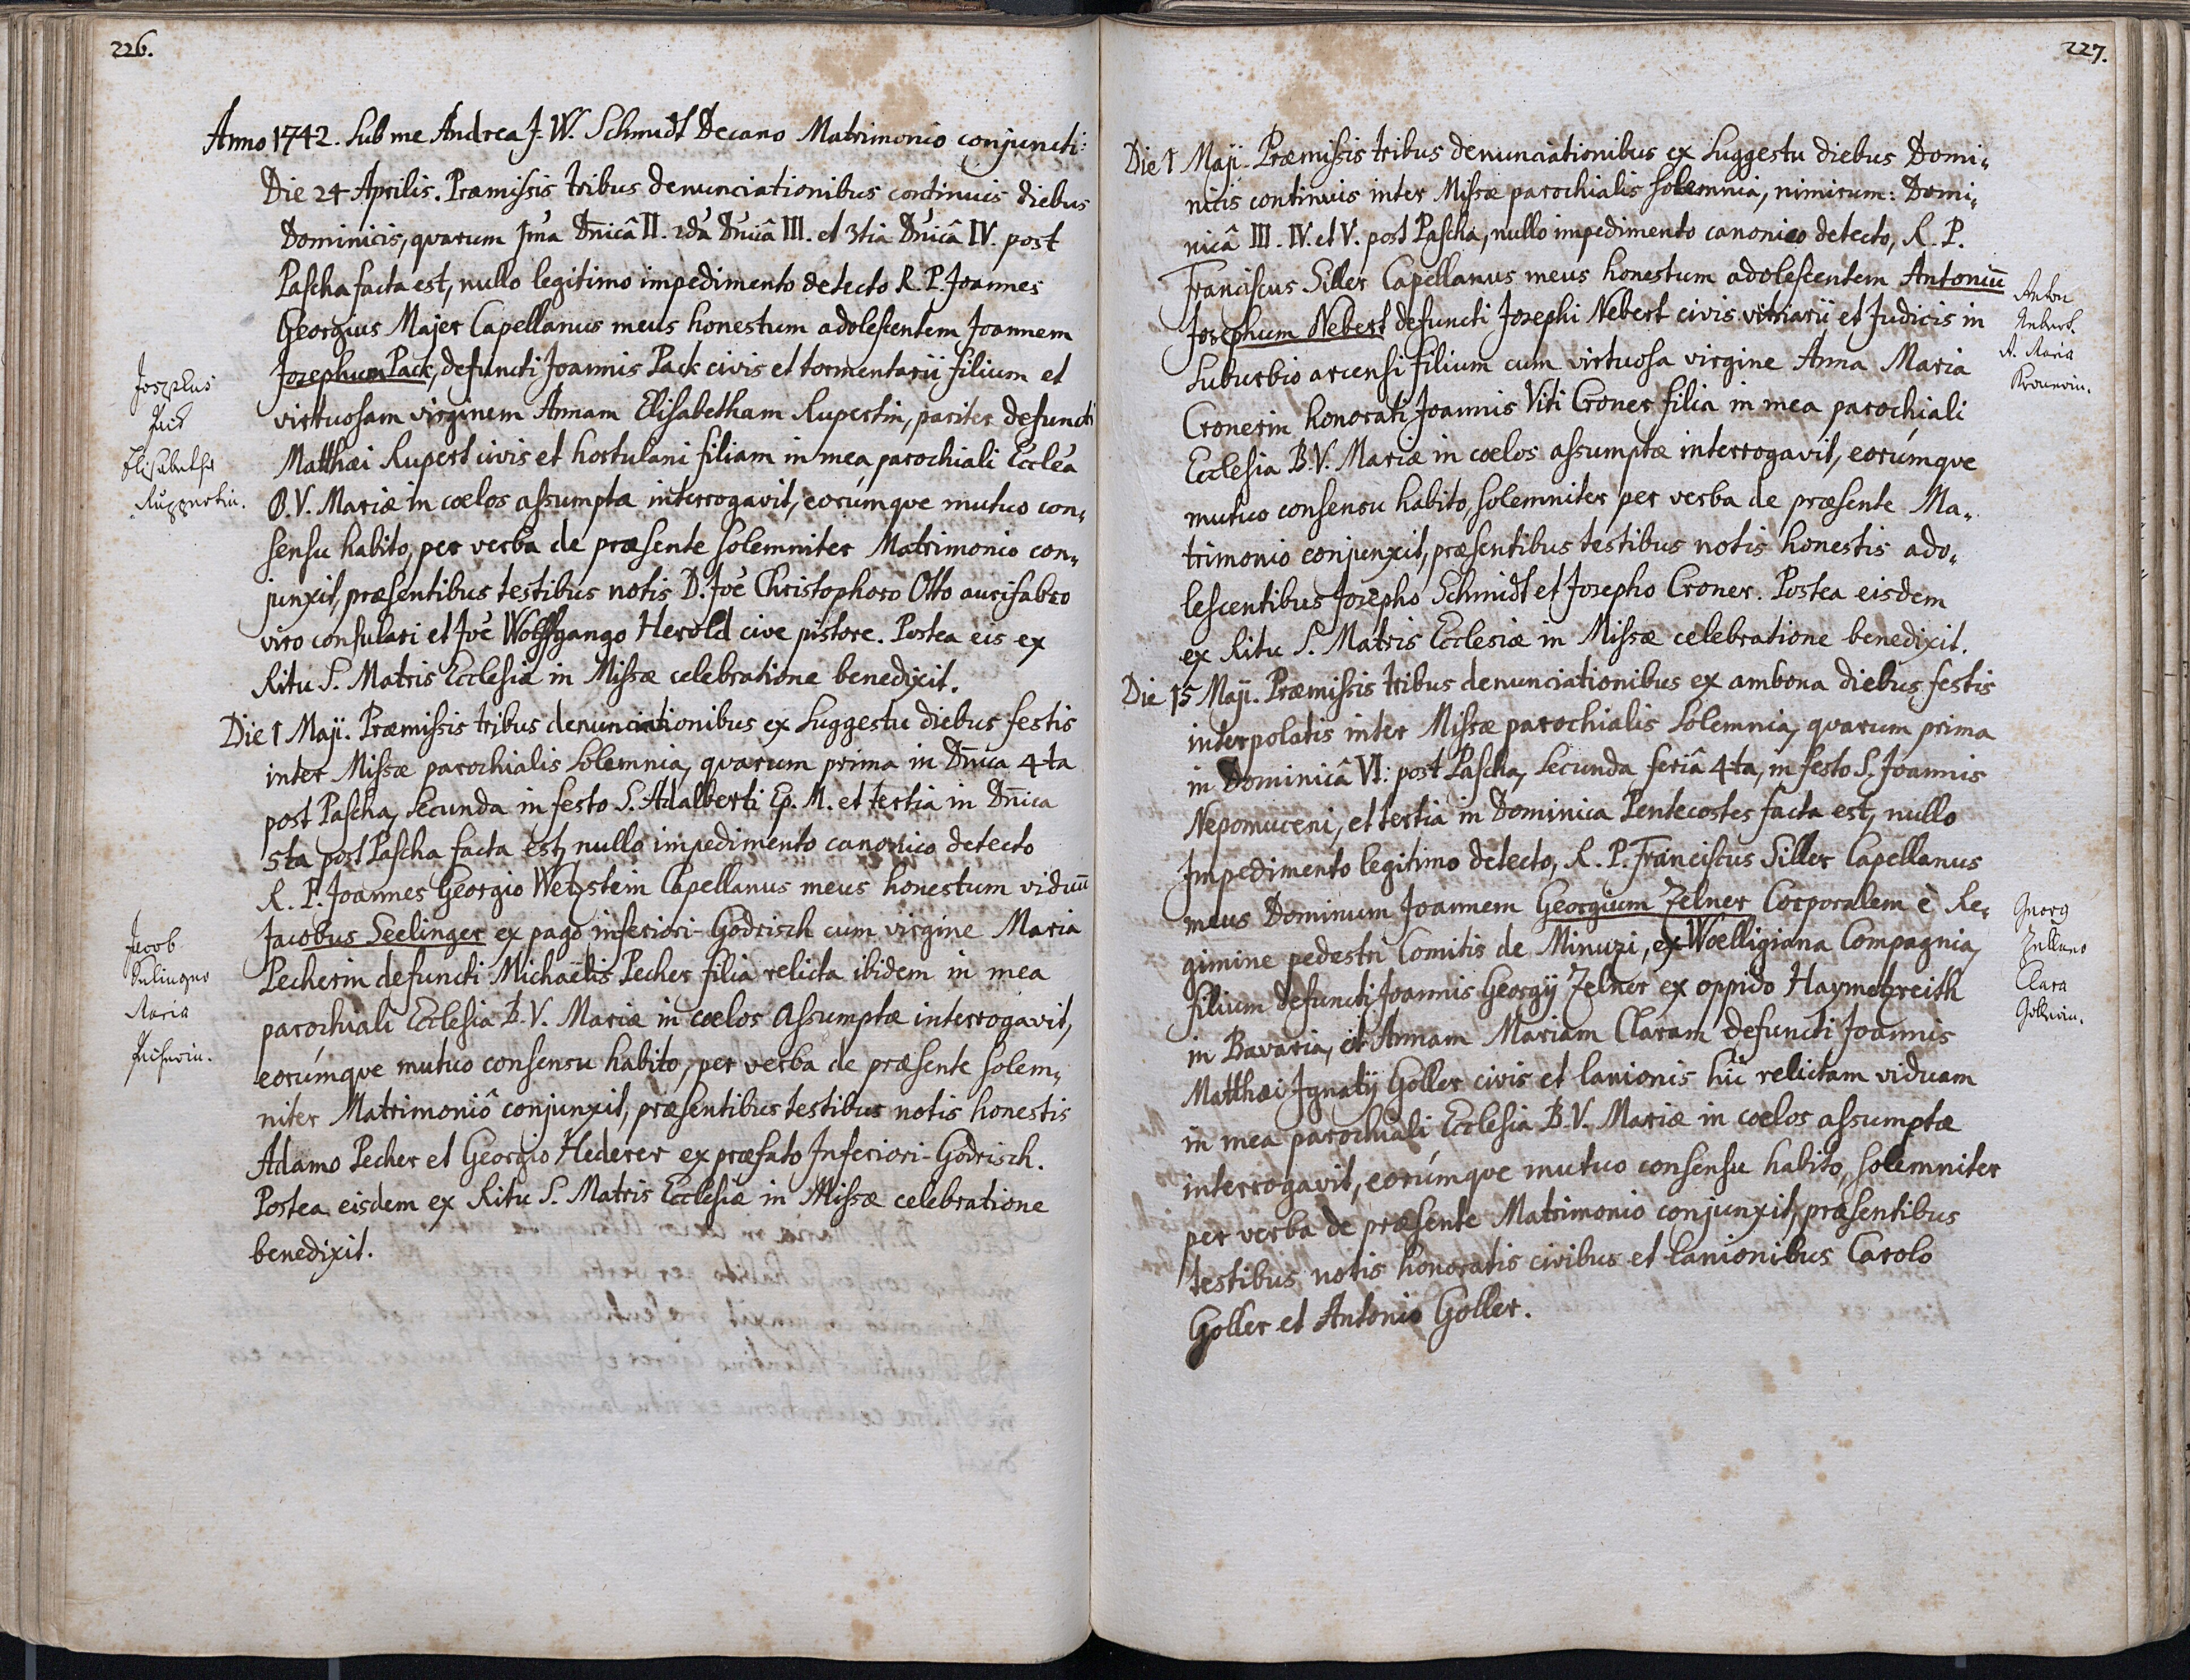 226.
Anno 1742. Sub me Andrea J. W. Schmidt Decano Matrimonio conjuncti:
Die 24 Aprilis. Præmissis tribus denunciationibus continuis diebus
Dominicis, quarum 1ma Dnicâ II. 2da Dnicâ III. et 3tia Dnicâ IV. post
Pascha facta est, nullo legitimo impedimento detecto R. P. Joannes
Georgius Majer Capellanus meus honestum adolescentem Joannem
Josephum Pack, defuncti Joannis Pack civis et tormentarii filium et
virtuosam virginem Annam Elisabetham Rupertin, pariter defuncti
Matthæi Rupert civis et hortulani filiam in mea parochiali Eccleâ
B. V. Mariæ in cœlos assumptæ interrogavit, eorúmque mutuo con„
sensu habito, per verba de præsente solemniter Matrimonio con„
junxit, præsentibus testibus notis D. Joe Christophoro Otto aurifabro
viro consulari et Joe Wolffgango Herold cive pistore. Postea eis ex
Ritu S. Matris Ecclesiæ in Missæ celebratione benedixit.
Josephus
Pack
Elisabetha
Ruppertin.
Die 1 Maji. Præmissis tribus denunciationibus ex Suggestu diebus festis
inter Missæ parochialis Solemnia, quarum prima in Dnica 4ta
post Pascha, Secunda in festo S. Adalberti Ep. M. et tertia in Dnica
5ta post Pascha facta est, nullo impedimento canonico detecto
R. P. Joannes Georgio Wetzstein Capellanus meus honestum viduū
Jacobus Seelinger ex pago inferiori-Godrisch cum virgine Maria
Pecherin defuncti Michaëlis Pecher filia relicta ibidem in mea
parochiali Ecclesia B. V. Mariæ in cœlos Assumptæ interrogavit,
eorúmque mutuo consensu habito, per verba de præsente solem„
niter Matrimoniô conjunxit, præsentibus testibus notis honestis
Adamo Pecher et Georgio Hederer ex præfato Inferiori-Godrisch.
Postea eisdem ex Ritu S. Matris Ecclesiæ in Missæ celebratione
benedixit.
Jacob
Selinger
Maria
Pecherin.
227.
Die 1 Maji. Præmissis tribus denunciationibus ex Suggestu diebus Domi„
nicis continuis inter Missæ parochialis solemnia, nimirum: Domi„
nicâ III. IV. et V. post Pascha, nullo impedimento canonico detecto, R. P.
Franciscus Siller Capellanus meus honestum adolescentem Antoniū
Josephum Nebert defuncti Josephi Nebert civis vitriarii et Judicis in
Suburbio arcensi filium cum virtuosa virgine Anna Maria
Cronerin honorati Joannis Viti Croner filia in mea parochiali
Ecclesia B. V. Mariæ in cœlos assumptæ interrogavit, eorúmque
mutuo consensu habito, solemniter per verba de præsente Ma„
trimonio conjunxit, præsentibus testibus notis honestis ado„
lescentibus Josepho Schmidt et Josepho Croner. Postea eisdem
ex Ritu S. Matris Ecclesiæ in Missæ celebratione benedixit.
Anton
Nebert.
A. Maria
Kronerin.
Die 15 Maji. Præmissis tribus denunciationibus ex ambona diebus festis
interpolatis inter Missæ parochialis Solemnia, quarum prima
in Dominicâ VI: post Pascha, Secunda feriâ 4ta, in festo S. Joannis
Nepomuceni, et tertia in Dominica Pentecostes facta est, nullo
Impedimento legitimo detecto, R. P. Franciscus Siller Capellanus
meus Dominum Joannem Georgium Zelner Corporalem è Re„
gimine pedestri Comitis de Minuzi, ex Woelligiana Compagnia,
filium defuncti Joannis Georgij Zelner ex oppido Haymetzreith
in Bavaria, et Annam Mariam Claram defuncti Joannis
Matthæi Ignatij Goller civis et lanionis hic relictam viduam
in mea parochiali Ecclesia B. V. Mariæ in cœlos assumptæ
interrogavit, eorúmque mutuo consensu habito, solemniter
per verba de præsente Matrimonio conjunxit, præsentibus
testibus notis honoratis civibus et lanionibus Carolo
Goller et Antonio Goller.
Georg
Zellner
Clara
Gollerin.